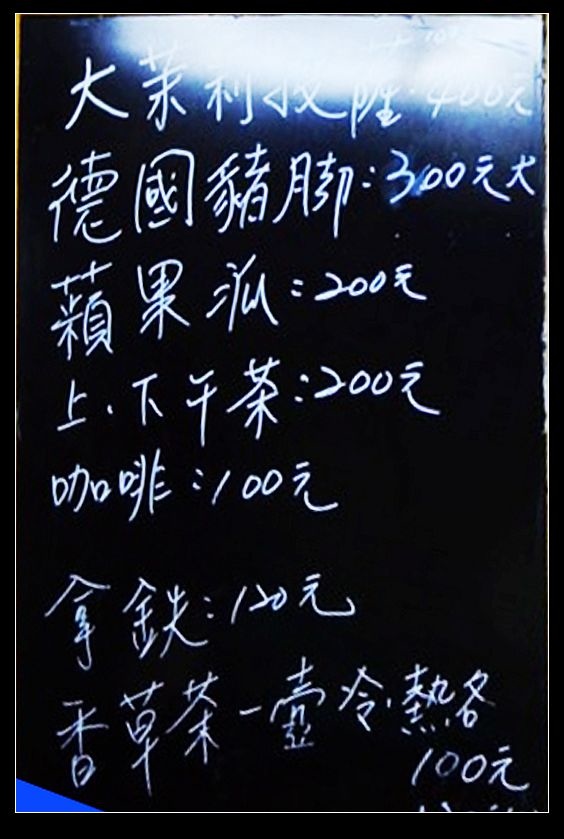 大茉利披薩:400元
德國豬脚:300元大
蘋果派:200元
上.下午茶:200元
咖啡:100元
拿鉄:120元
香草茶一壼冷.熱各
100元